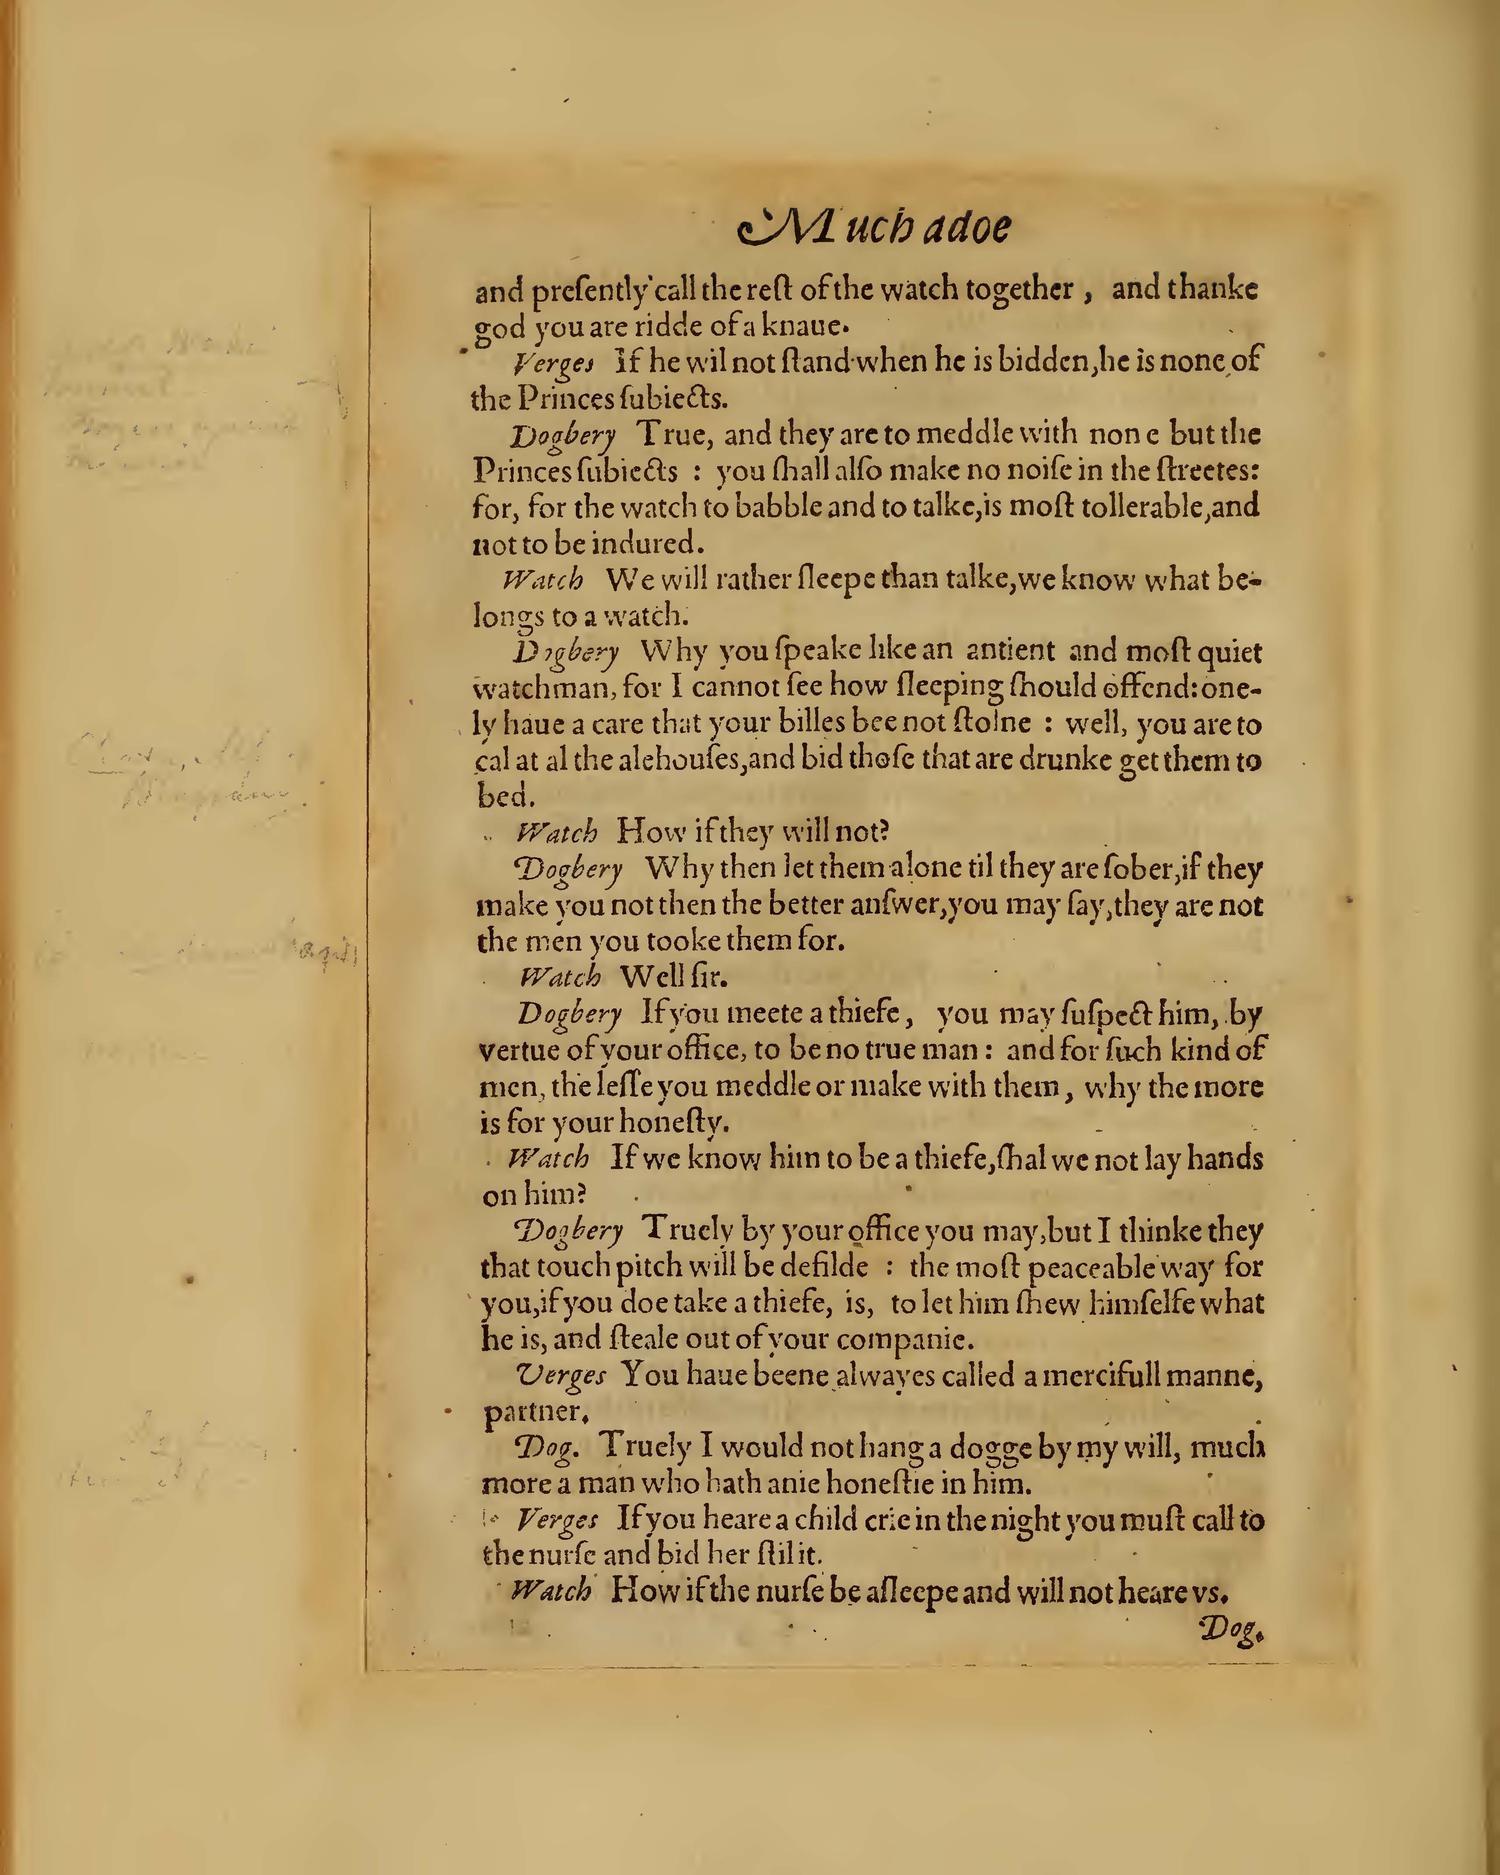 Much adoe
and preſently call the reſt of the watch together , and thanke
god you are ridde of a knaue.
Verges If he wil not ſtand when he is bidden,he is none of
the Princes ſubiects.
Dogbery True, and they are to meddle with none but the
Princes ſubiects : you ſhall alſo make no noiſe in the ſtreetes:
for, for the watch to babble and to talke,is moſt tollerable,and
not to be indured.
Watch We will rather ſleepe than talke,we know what be-
longs to a watch.
Dogbery Why you ſpeake like an antient and moſt quiet
watchman, for I cannot ſee how ſleeping ſhould offend: one-
ly haue a care that your billes bee not ſtolne : well, you are to
cal at al the alehouſes,and bid thoſe that are drunke get them to
bed.
Watch How if they will not?
Dogbery Why then let them alone til they are ſober,if they
make you not then the better anſwer,you may ſay,they are not
the men you tooke them for.
Watch Well ſir.
Dogbery If you meete a thiefe , you may ſuſpect him, by
vertue of your office, to be no true man : and for ſuch kind of
men, the leſſe you meddle or make with them , why the more
is for your honeſty.
Watch If we know him to be a thiefe,ſhal we not lay hands
on him?
Dogbery Truely by your office you may,but I thinke they
that touch pitch will be defilde : the moſt peaceable way for
you,if you doe take a thiefe, is, to let him ſhew himſelfe what
he is, and ſteale out of your companie.
Verges You haue beene alwayes called a mercifull manne,
partner.
Dog. Truely I would not hang a dogge by my will, much
more a man who hath anie honeſtie in him.
Verges If you heare a child crie in the night you muſt call to
the nurſe and bid her ſtil it.
Watch How if the nurſe be aſleepe and will not heare vs.
Dog.